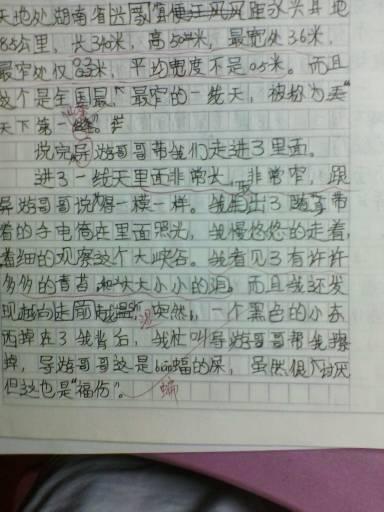 天地处湖南省
85公里，长340米，高50米，最宽处3.6米，
最窄处仅0.33米，平均宽度不足0.5米。而且
这个是全国最长，最窄的一线天，被称为“
天下第一线。”
说完导游哥哥带我们走进了里面。
进了一线天里面非常长，非常窄，跟
导游哥哥说得一模一样。我拿出了随身带
着的手电筒在里面照光，我慢悠悠的走着，
看细的观察这个大峡谷。我看见了有许许
多多的青苔，和大大小小的洞，而且我还发
现越向走突然，一个黑色的小东
西掉在了我背后，我忙叫导游哥哥帮我擦
掉，导游哥哥这是bian蝠的屎，虽然很讨厌
但这也是“福伤”。蝙